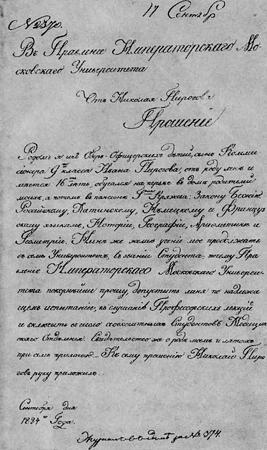 17 Сентябр
№ 2570.
Въ Правленіе Императорскаго Мо-
сковскаго Университета
Отъ Николая Пирогова
Прошеніе
Родомъ я изъ Оберъ-Офицерскихъ дѣтей, сынъ Комми-
сіонера 9го класса Ивана Пирогова; отъ роду мнѣ и-
мѣется 16 лѣтъ, обучался на прежь въ домѣ родителей
моихъ, а потомъ въ пансіонѣ Гна Кряжева: Закону Божію
Россійскому, Латинскому, Нѣмецкому и Француз-
скому языкамъ, Исторіи, Географіи, Ариѳметикѣ и
Геометріи. Нынѣ же желаю ученіе мое продолжать
въ семъ Университетѣ, въ званіи Студента; почему Пра-
вленіе Императорскаго Московскаго Универси-
тета покорнѣйше прошу, допустить меня по надлежа-
щемъ испытаніи, къ слушанію Профессорскихъ лекцій
и включить въ число своекоштныхъ Студентовъ Медицин-
скаго Отдѣленія. Свидѣтельство же о родѣ моемъ и лѣтахъ
при семъ прилагаю. Къ сему прошенію Николай Пиро-
говъ руку приложилъ.
Сентября дня
1824 Года.
№ 374.